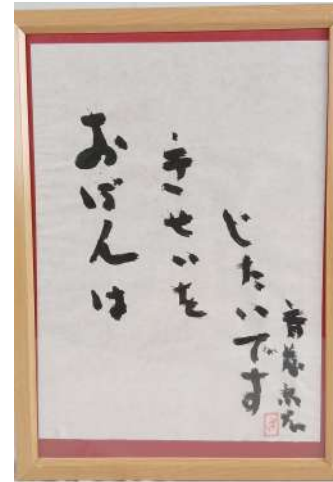 おぼんは
きせいを
じたいです